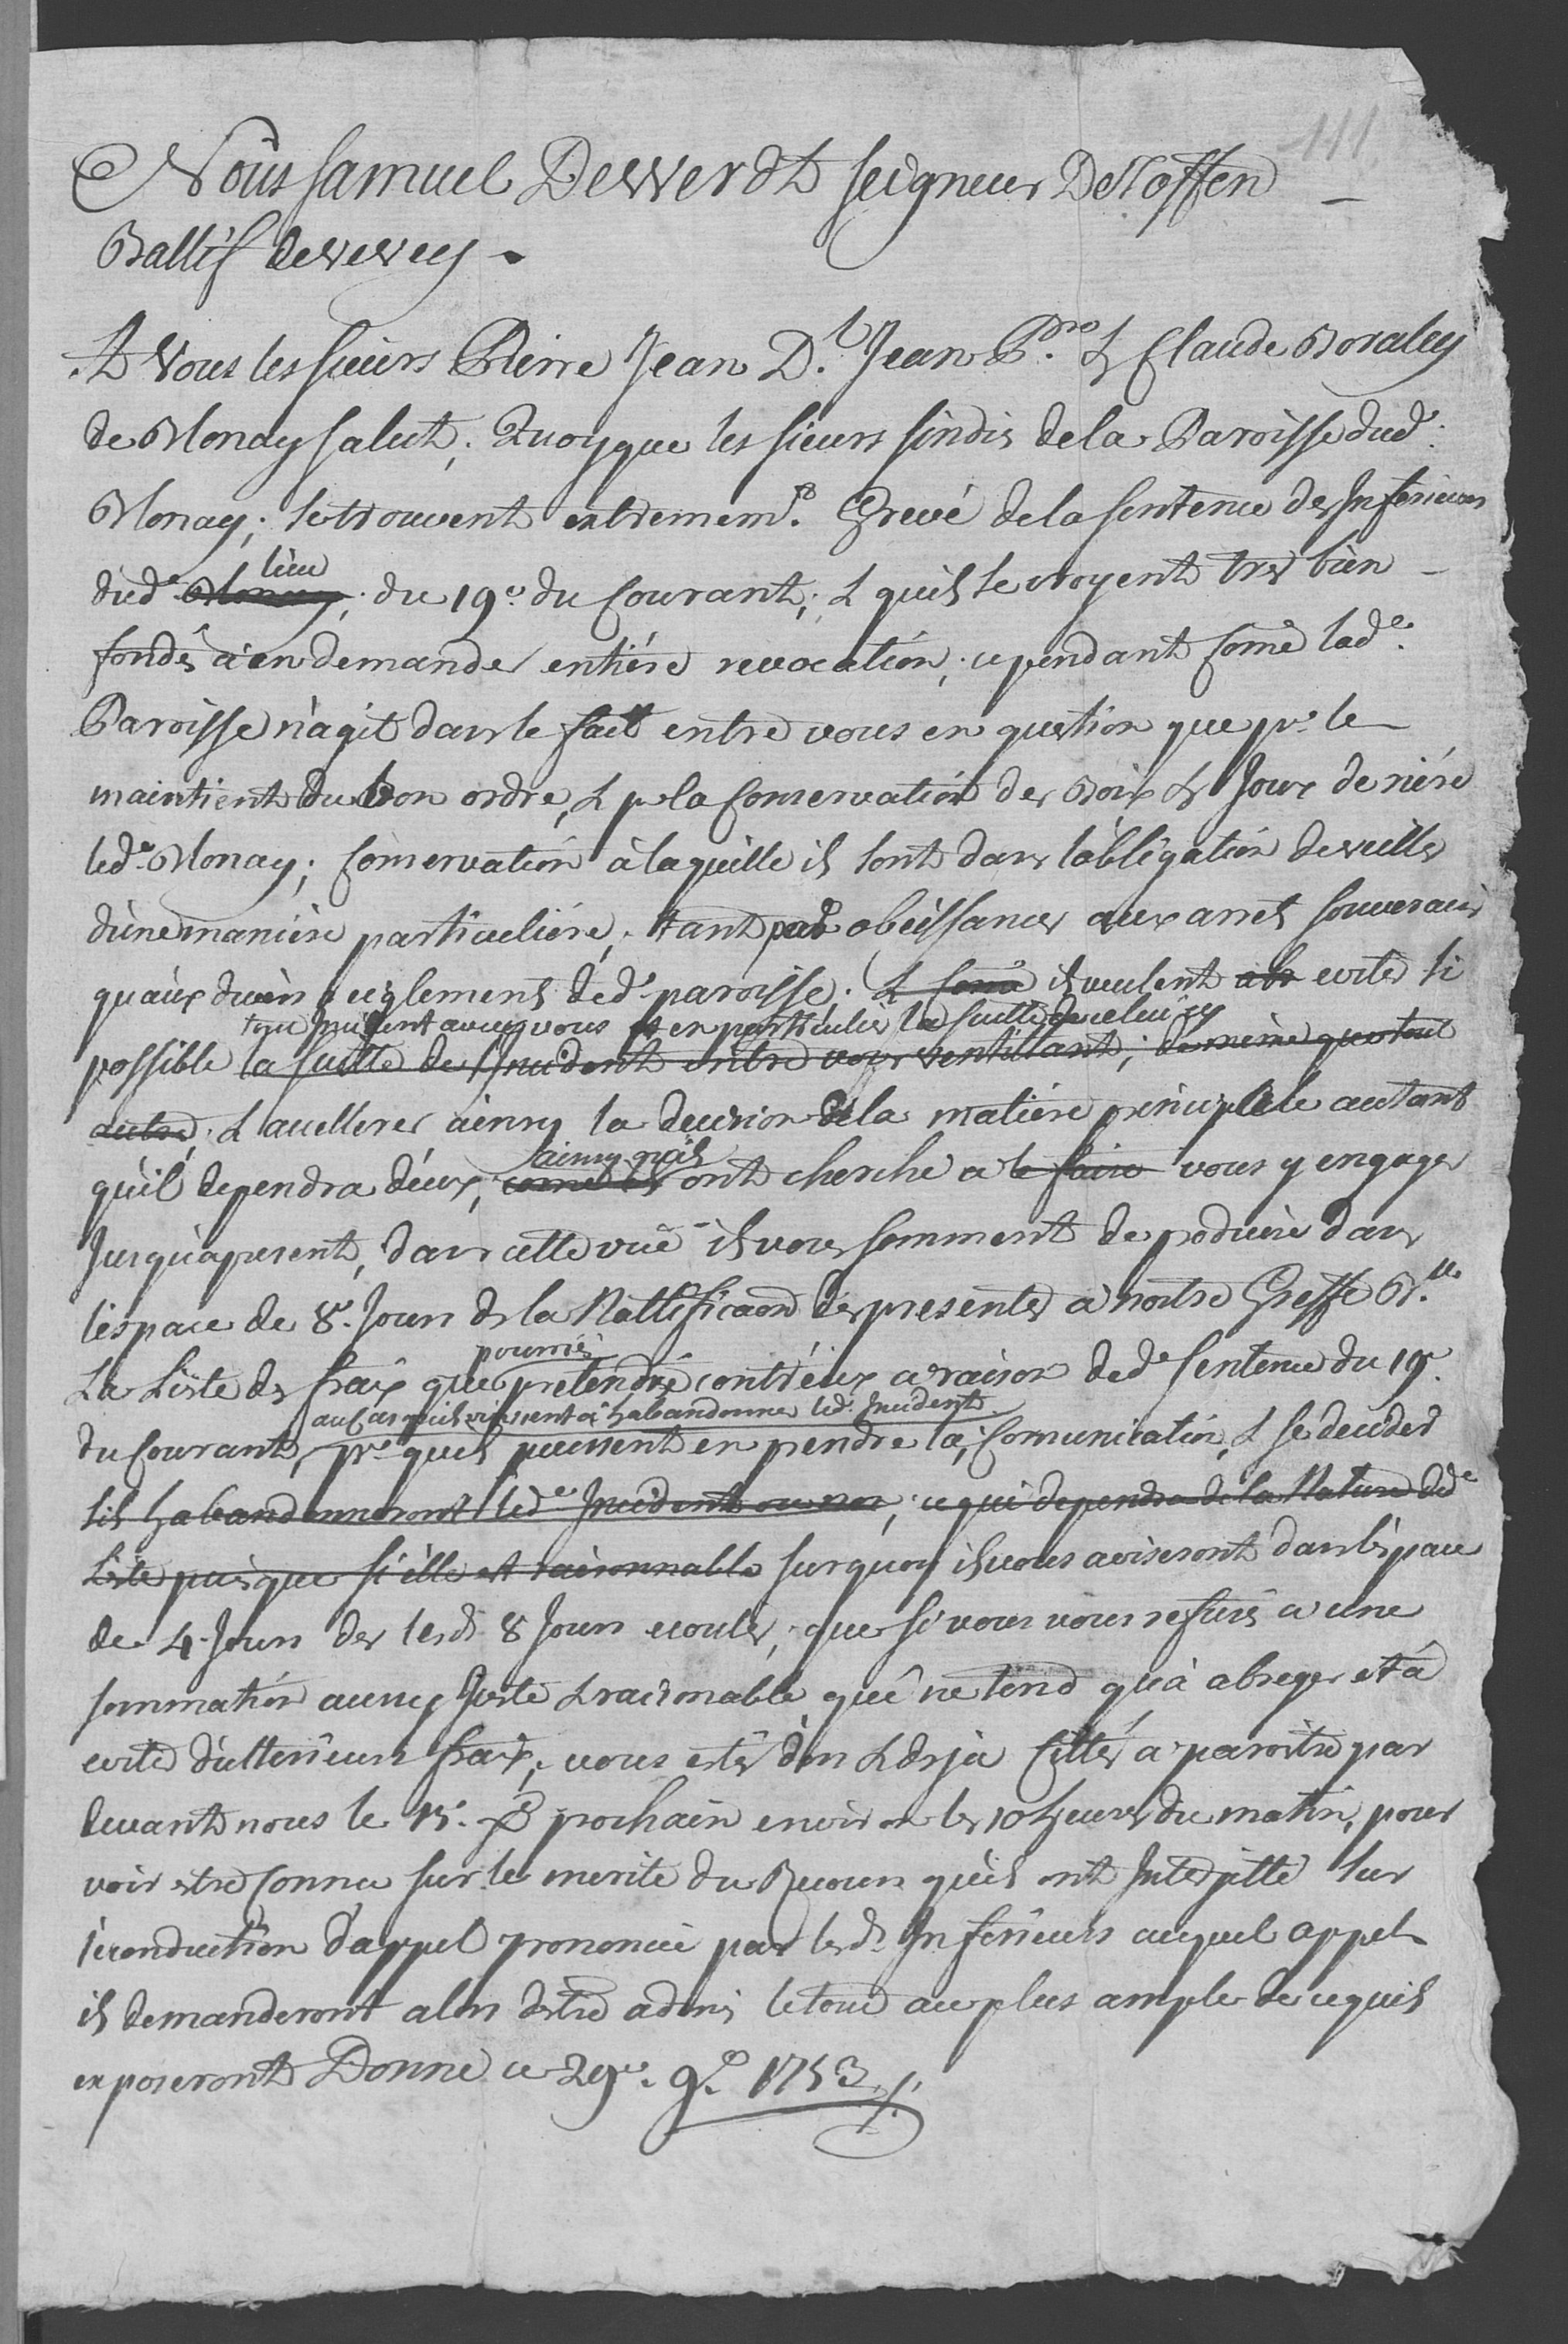 111
Nous Samuel DeWerdt Seigneur DeToffen
Ballif deVevey.
A Vous les sieurs Pierre Jean D.l Jean P.re & Claude Boraley
de Blonay salut; Quoyque les sieurs sindis dela Paroisse dud:
Blonay; se trouvent extrememt. Grevé dela sentence des Inferieurs
lieu
dud.e Blonay; du 19e. du Courant; & quils se croyent tres bien
fondés a en demander entiére revocation; cependant Come lade.
Paroisse n'agit dans le fait entre vous en question que pr. le
maintient du bon ordre, & pr la Conservation des Bois & Joux de riére
led.e Blonay; Conservation à laquelle ils sont dans l'obligation de veiller
d'une maniére particuliére, tant par obeissance aux arrets souverains
qu'aux divers reiglements ded.e paroisse; & Come ils veulent eviter si
tous Incident avecq vous et en particulier la suitte de celuicy
possible la suitte de l'Incident entre vous ventillant; de même que tout
autre; & accellerer ainsy la decision dela matiére principlele autant
ainsy qu'ils
qu'il dependra d'eux, come ils ont cherché a le faire vous y engager
Jusqu'apresent, dans cette vüe ils vous somment de produire dans
l'espace de 8. Jours de la Nottificaon des presentes a nostre Greffe B.lle
pourriés
La Liste des fraix que pretendre contr'eux a raison ded.e sentence du 19e.
au Cas quils viennent à habandonner led. Incident
du Courant, pr. quils puissent en prendre la Comunication, & se decider
sils habandonneront led.e Incident ou non; ce qui dependra de la Nature ded.e
Liste puisque si elle est raisonnable surquoy ils vous aviseront dans l'espace
de 4. Jours des lesd. 8 Jours ecoulés; que si vous vous refusés a une
sommation aussy Juste & raisonable que ne tend qu'a abreger et à
eviter d'ulterieurs fraix, vous estes d'en & deja Cittés a paroitre par
devant nous le 15. Xbre prochain environ les 10 heures du matin, pour
voir estre Connu sur le merite du Recours quils ont Interjetté sur
l'econduction d'appel prononcée par lesd. Inferieurs auquel appel
ils demanderont alors d'estre admis le tout au plus ample de ce quils
exposeront Donné ce 29e. 9bre 1753